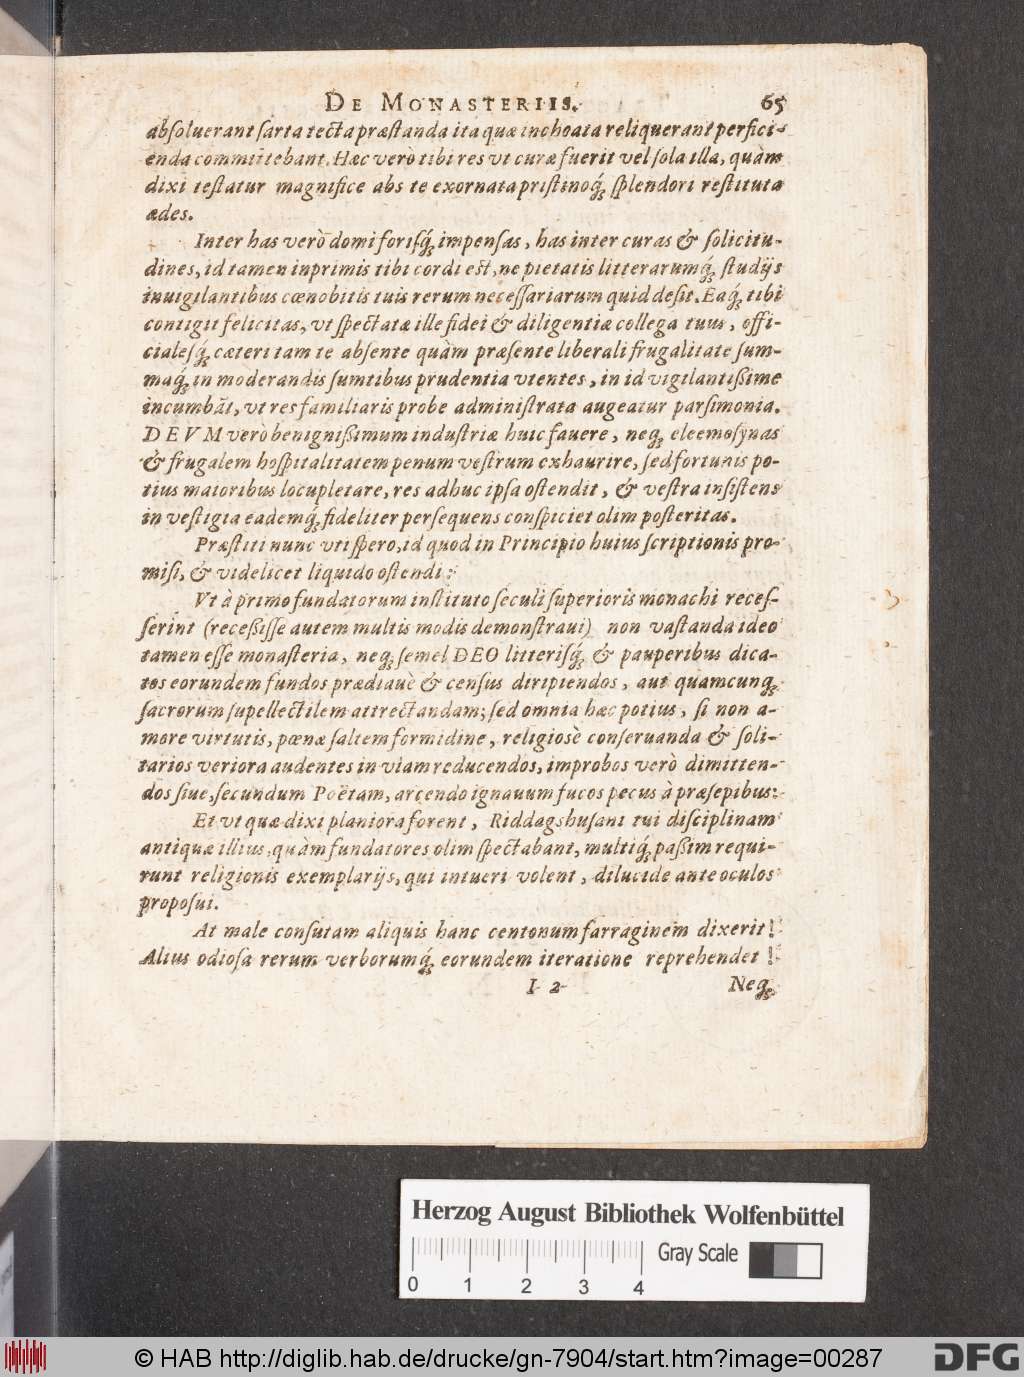 DE MONASTERIIS. 65
absoluerant sarta tecta præstanda ita quæ inchoata reliquerant perfici-
enda committebant. Hæc verò tibi res vt curæ fuerit vel sola illa, quàm
dixi testatur magnifice abs te exornata pristinoq́; splendori restituta
ædes.
Inter has verò domi forisq́; impensas, has inter curas & solicitu-
dines, id tamen inprimis tibi cordi est, ne pietatis litterarumq́; studijs
inuigilantibus cœnobitis tuis rerum necessariarum quid desit. Eaq́; tibi
contigit felicitas, vt spectatæ ille fidei & diligentiæ collega tuus, offi-
cialesq́; cæteri tam te absente quàm præsente liberali frugalitate sum-
maq́; in moderandis sumtibus prudentia vtentes, in id vigilantißime
incumbãt, vt res familiaris probe administrata augeatur parsimonia.
DEVM verò benignißimum industriæ huic fauere, neq; eleemosynas
& frugalem hospitalitatem penum vestrum exhaurire, sed fortunis po-
tius maioribus locupletare, res adhuc ipsa ostendit, & vestra insistens
in vestigia eademq́; fideliter persequens conspiciet olim posteritas.
Præstiti nunc vti spero, id quod in Principio huius scriptionis pro-
misi, & videlicet liquido ostendi:
Vt à primo fundatorum instituto seculi superioris monachi reces-
serint (receßisse autem multis modis demonstraui) non vastanda ideo
tamen esse monasteria, neq; semel DEO litterisq́; & pauperibus dica-
tos eorundem fundos prædiauè & census diripiendos, aut quamcunq;
sacrorum supellectilem attrectandam; sed omnia hæc potius, si non a-
more virtutis, pœnæ saltem formidine, religiosè conseruanda & soli-
tarios veriora audentes in viam reducendos, improbos verò dimitten-
dos siue, secundum Poëtam, arcendo ignauum fucos pecus à præsepibus:
Et vt quæ dixi planiora forent, Riddagshusani tui disciplinam
antiquæ illius, quàm fundatores olim spectabant, multiq́; paßim requi-
runt religionis exemplarijs, qui intueri volent, dilucide ante oculos
proposui.
At male consutam aliquis hanc centonum farraginem dixerit!
Alius odiosa rerum verborumq́; eorundem iteratione reprehendet!
I 2 Neq;
Herzog August Bibliothek Wolfenbüttel
Gray Scale
0 1 2 3 4
© HAB http://diglib.hab.de/drucke/gn-7904/start.htm?image=00287
DFG